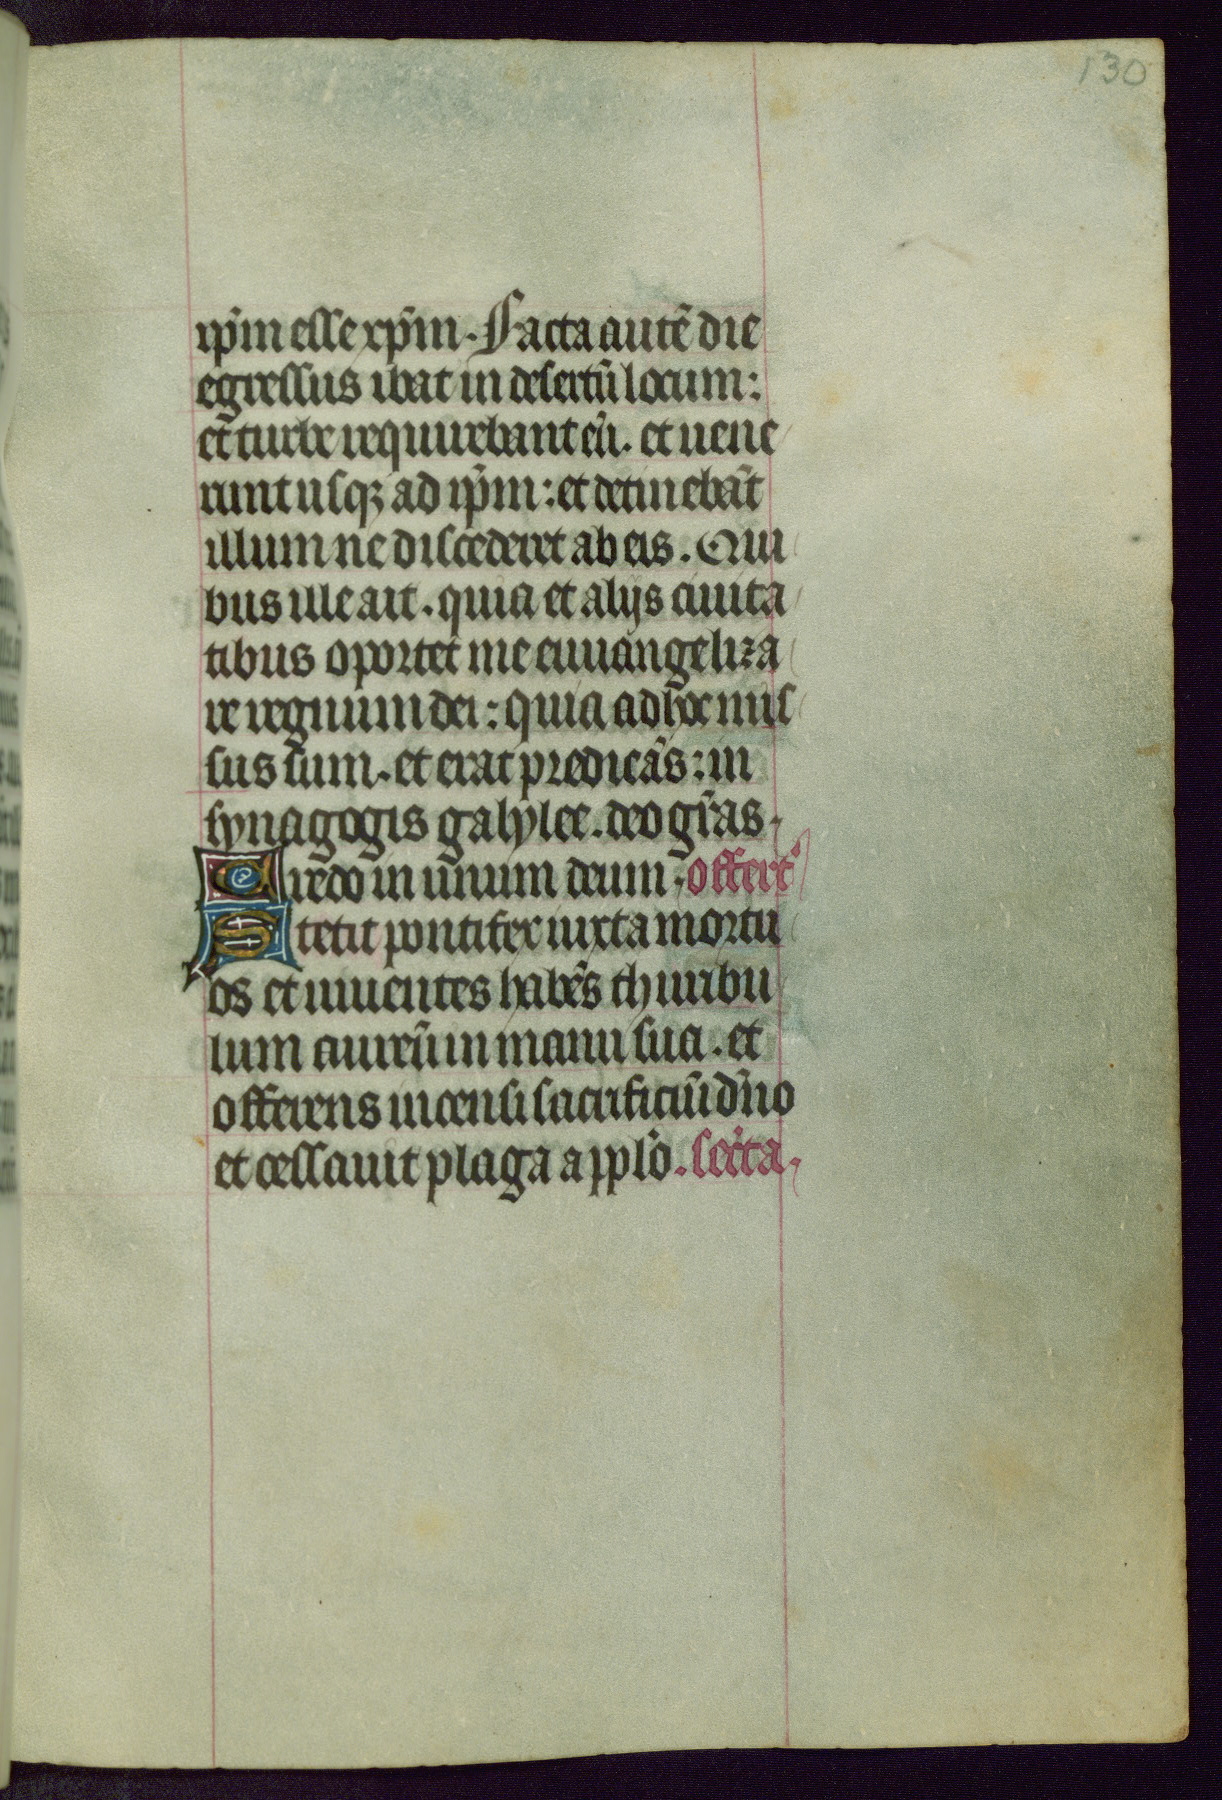 130
ip̄m esse xp̄m. Facta autē die
egressus ibat in desertū locum:
et turbe requirebant eū. et uene
runt usqꝫ ad ip̄m: et detinebāt
illum ne discederet ab eis. Qui
bus ille ait. quia et alijs ciuita
tibus oportet me euuangeliza
re regnum dei: quia ad hoc mis
sus sum. et erat predicās: in
synagogis galylee. deo gr̄as.
Credo in unum deum. offert̄
Stetit pontifex iuxta mortu
os et uiuentes habēs thuribu
lum aureū in manu sua. et
offerens incensi sacrificiū dn̄o
et cessauit plaga a pplō. sec̄ta.